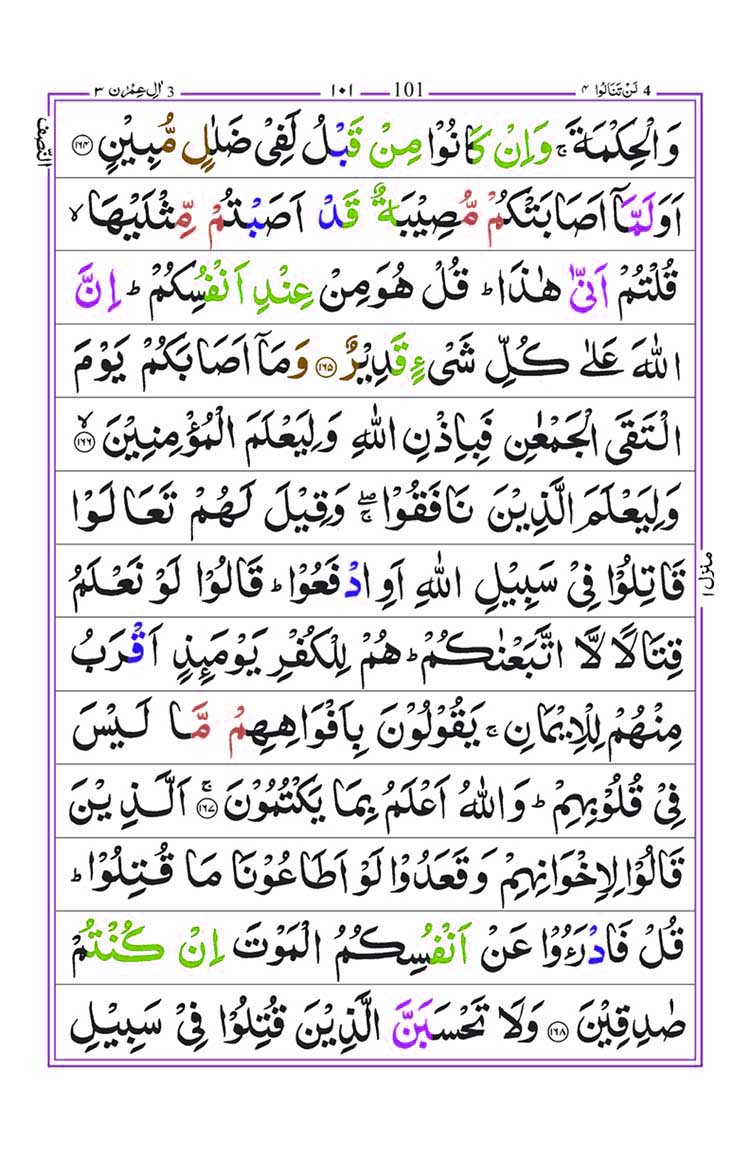 لَنْ تَنَالُوْا ۴ 4 101 ۱۰۱ 3 اٰلِ عِمْرٰن ۳
النّصف
وَالْحِكْمَةَ ۚ وَاِنْ كَانُوْا مِنْ قَبْلُ لَفِیْ ضَلٰلٍ مُّبِیْنٍ ﴿۱۶۴﴾
اَوَلَمَّاۤ اَصَابَتْكُمْ مُّصِیْبَةٌ قَدْ اَصَبْتُمْ مِّثْلَیْهَا ۙ
قُلْتُمْ اَنّٰی هٰذَا ؕ قُلْ هُوَ مِنْ عِنْدِ اَنْفُسِكُمْ ؕ اِنَّ
اللّٰهَ عَلٰی كُلِّ شَیْءٍ قَدِیْرٌ ﴿۱۶۵﴾ وَمَاۤ اَصَابَكُمْ یَوْمَ
الْتَقَی الْجَمْعٰنِ فَبِاِذْنِ اللّٰهِ وَلِیَعْلَمَ الْمُؤْمِنِیْنَ ﴿۱۶۶﴾ ۙ
وَلِیَعْلَمَ الَّذِیْنَ نَافَقُوْا ۖۚ وَقِیْلَ لَهُمْ تَعَالَوْا
قَاتِلُوْا فِیْ سَبِیْلِ اللّٰهِ اَوِ ادْفَعُوْا ؕ قَالُوْا لَوْ نَعْلَمُ
منزل ۱
قِتَالًا لَّا اتَّبَعْنٰكُمْ ؕ هُمْ لِلْكُفْرِ یَوْمَئِذٍ اَقْرَبُ
مِنْهُمْ لِلْاِیْمَانِ ۚ یَقُوْلُوْنَ بِاَفْوَاهِهِمْ مَّا لَیْسَ
فِیْ قُلُوْبِهِمْ ؕ وَاللّٰهُ اَعْلَمُ بِمَا یَكْتُمُوْنَ ﴿۱۶۷﴾ ۚ اَلَّذِیْنَ
قَالُوْا لِاِخْوَانِهِمْ وَقَعَدُوْا لَوْ اَطَاعُوْنَا مَا قُتِلُوْا ؕ
قُلْ فَادْرَءُوْا عَنْ اَنْفُسِكُمُ الْمَوْتَ اِنْ كُنْتُمْ
صٰدِقِیْنَ ﴿۱۶۸﴾ وَلَا تَحْسَبَنَّ الَّذِیْنَ قُتِلُوْا فِیْ سَبِیْلِ